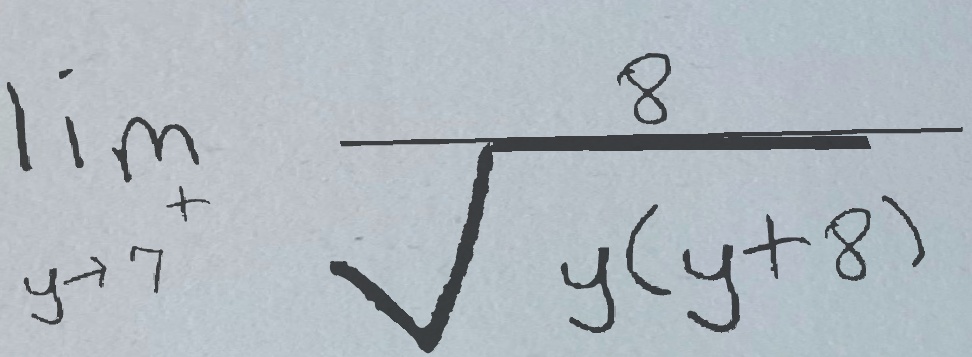 \lim_{y \to 7^+} \frac{8}{\sqrt{y(y+8)}}